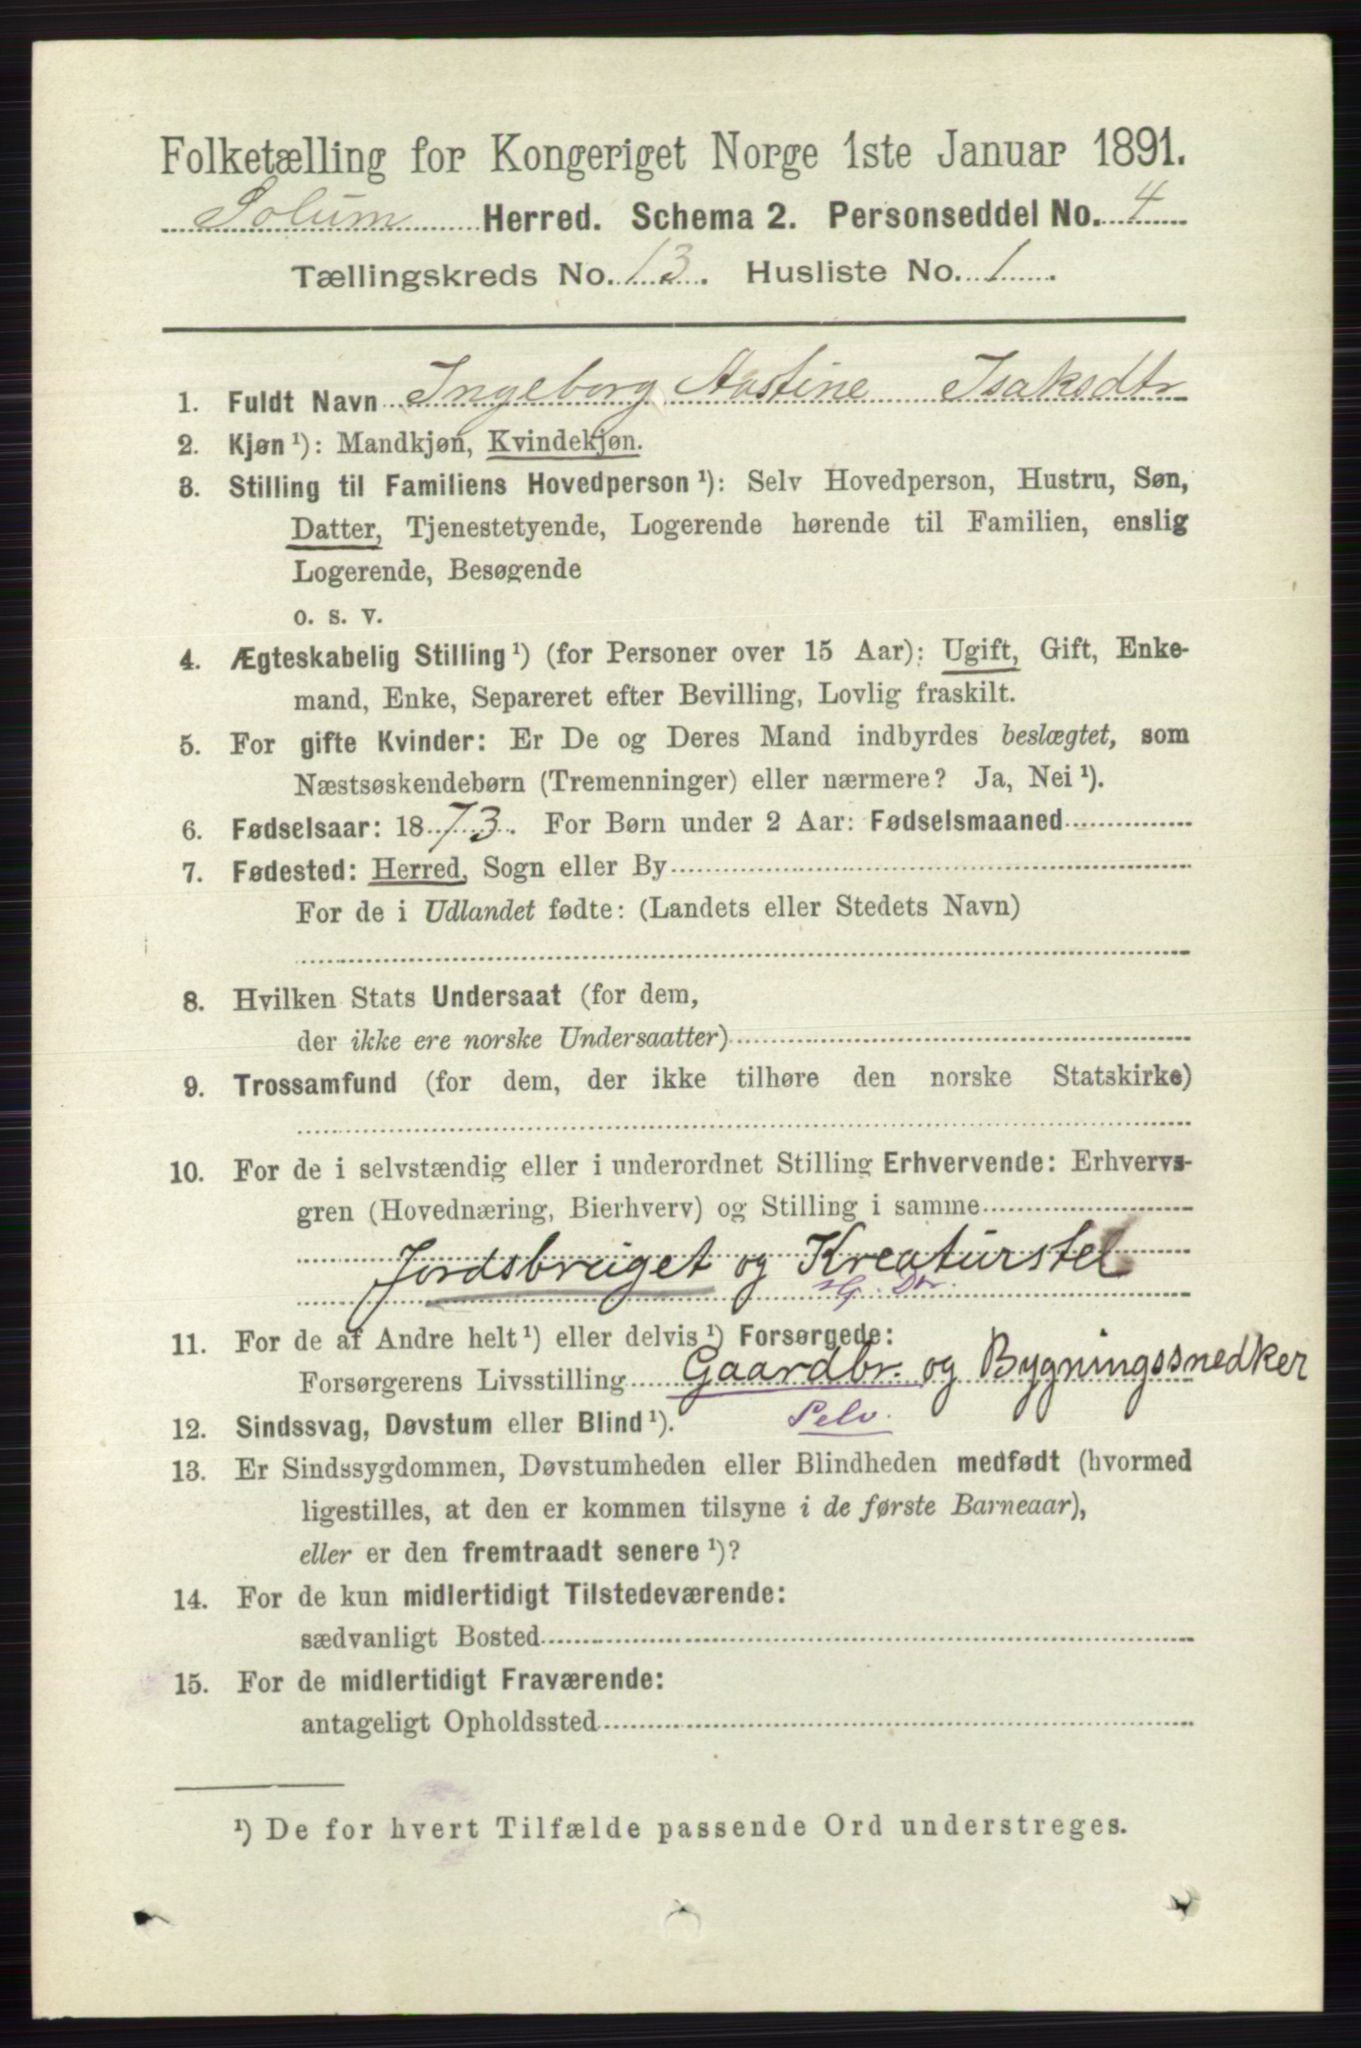 Folketælling for Kongeriget Norge 1ste Januar 1891.
Solum Herred. Schema 2. Personseddel No. 4
Tællingskreds No. 13. Husliste No. 1.
1. Fuldt Navn Ingeborg Aastine Isaksdtr
2. Kjøn ¹): Mandkjøn, Kvindekjøn.
3. Stilling til Familiens Hovedperson ¹): Selv Hovedperson, Hustru, Søn,
Datter, Tjenestetyende, Logerende hørende til Familien, enslig
Logerende, Besøgende
o. s. v.
4. Ægteskabelig Stilling ¹) (for Personer over 15 Aar): Ugift, Gift, Enke-
mand, Enke, Separeret efter Bevilling, Lovlig fraskilt.
5. For gifte Kvinder: Er De og Deres Mand indbyrdes beslægtet, som
Næstsøskendebørn (Tremenninger) eller nærmere? Ja, Nei ¹).
6. Fødselsaar: 1873. For Børn under 2 Aar: Fødselsmaaned
7. Fødested: Herred, Sogn eller By
For de i Udlandet fødte: (Landets eller Stedets Navn)
8. Hvilken Stats Undersaat (for dem,
der ikke ere norske Undersaatter)
9. Trossamfund (for dem, der ikke tilhøre den norske Statskirke)
10. For de i selvstændig eller i underordnet Stilling Erhvervende: Erhvervs-
gren (Hovednæring, Bierhverv) og Stilling i samme
Jordsbruget og Kreaturstel
Dtr.
11. For de af Andre helt ¹) eller delvis ¹) Forsørgede:
Forsørgerens Livsstilling Gaardbr. og Bygningssnedker
Selv.
12. Sindssvag, Døvstum eller Blind ¹).
13. Er Sindssygdommen, Døvstumheden eller Blindheden medfødt (hvormed
ligestilles, at den er kommen tilsyne i de første Barneaar),
eller er den fremtraadt senere ¹)?
14. For de kun midlertidigt Tilstedeværende:
sædvanligt Bosted
15. For de midlertidigt Fraværende:
antageligt Opholdssted
¹) De for hvert Tilfælde passende Ord understreges.